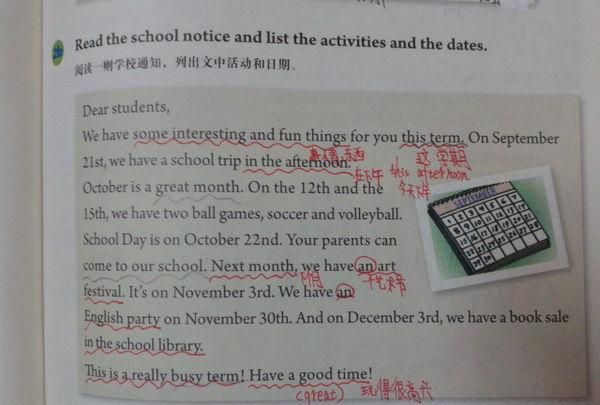 2b
Read the school notice and list the activities and the dates.
阅读一则学校通知，列出文中活动和日期。
Dear students,
We have some interesting and fun things for you this term. On September
这学期
21st, we have a school trip in the afternoon.
在下午 this afternoon
今天下午
October is a great month. On the 12th and the
15th, we have two ball games, soccer and volleyball.
SEPTEMBER
School Day is on October 22nd. Your parents can
come to our school. Next month, we have an art
festival. It's on November 3rd. We have an
English party on November 30th. And on December 3rd, we have a book sale
in the school library.
This is a really busy term! Have a good time!
(great) 玩得很高兴